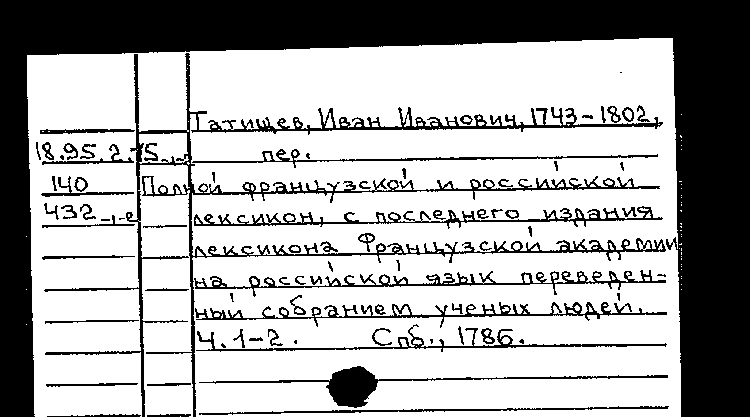 Татищев, Иван Иванович, 1743-1802,
18.95.2.15-1-2 пер.
140 Полной французской и российской
432-1-е лексикон, с последнего издания
лексикона Французской академии
на российской язык переведен-
ный собранием ученых людей.
Ч. 1-2. Спб., 1786.